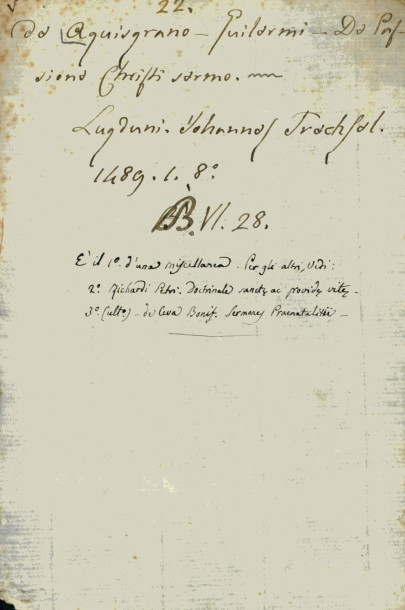 22.
de Aquisgrano - Guilermi - De Pas-
sione Christi sermo.
Lugduni. Iohannes Trechsel.
1489. 1. 8°.
B. VI. 28.
E' il 1°. d'una miscellanea. Per gli altri, vedi:
2°. Richardi Petri. Doctrinale sanctę ac providę vitę -
3°. (ult°.) - de Ceva Bonif. Sermones Praenatalitii -